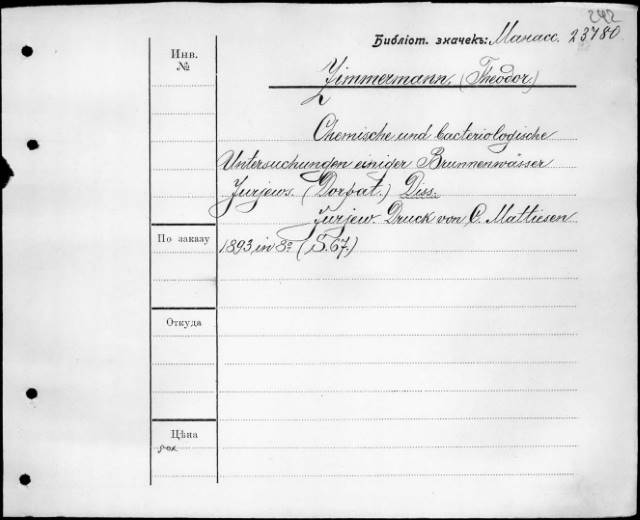 242
Библіот. значекъ: Манасс. 23780
Инв. №
Zimmermann. (Theodor)
Chemische und bacteriologische
Untersuchungen einiger Brunnenwässer
Jurjews. (Dorpat.) Diss.
Jurjew. Druck von C. Mattiesen
По заказу
1893, in 8º (S. 67.)
Откуда
Цѣна